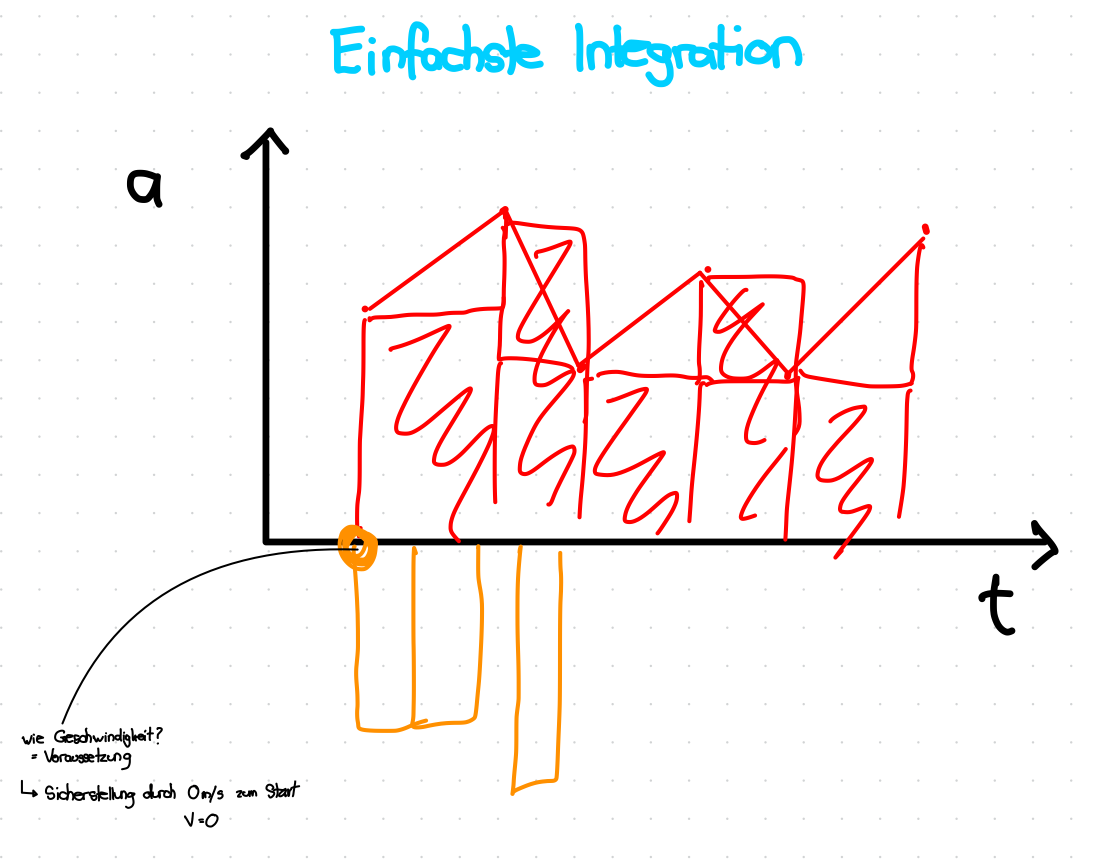 Einfachste Integration
a
t
wie Geschwindigkeit?
= Voraussetzung
↳ Sicherstellung durch 0m/s zum Start
V=0